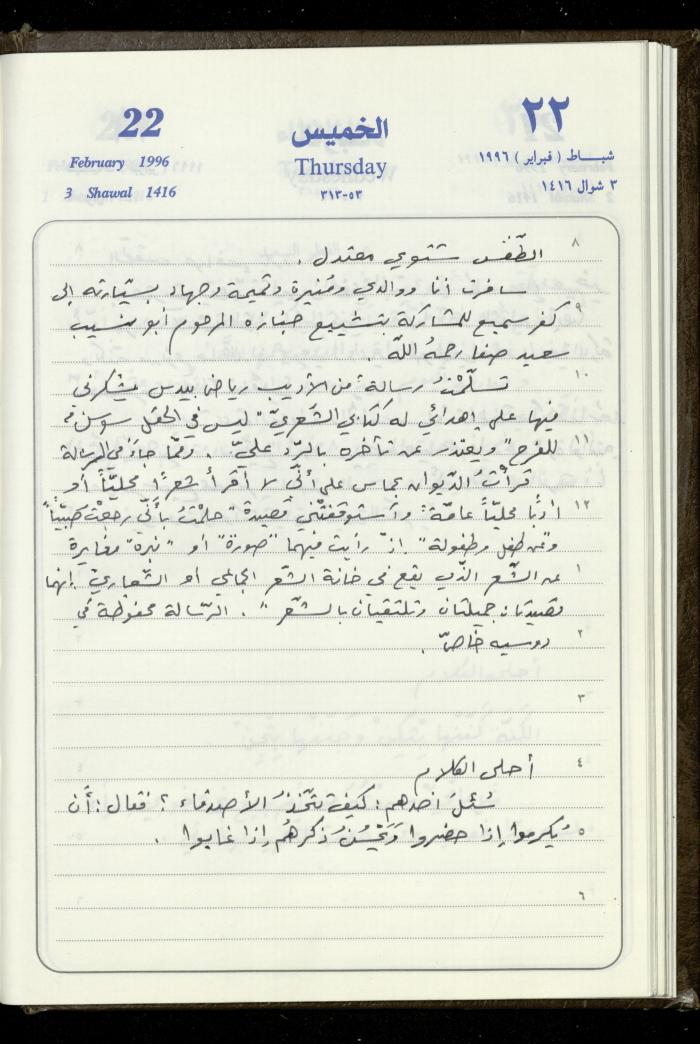 22
الخميس
٢٢
February 1996
Thursday
شبـاط ( فبراير ) ١٩٩٦
3 Shawal 1416
٥٣-٣١٣
٣ شوال ١٤١٦
٨ الطّقس شتوي معتدل .
سافرت أنا ووالدي ومنيرة وتميمة وجهاد بسيّارته إلى
٩ كفرسميع للمشاركة بتشييع جنازه المرحوم أبو نسيب
سعيد صفا رحمهُ اللّه .
١٠ تسلّمْتُ رسالةً من الأديب رياض بيدس يشكرني
فيها على إهدائي له كتابي الشّعريّ "ليس في الحقل سوسن
١١ للفرح" ويعتذر عن تأخره بالرّدِّ عليّ . وممّا جاءَ في الرسالة
قرأتُ الدّيوان بحماس على أنّي لا أقرأ شعرًا محليّاً أو
١٢ أدبًا محليّاً عامّةً: واستوقفتْني قصيدة "حلمْتُ بأنّي رجعْتُ صبيّاً"
و"عن طفل وطفولة" إذْ رأيت فيهما "صورَة" أو "نبرة" مغايرة
١ عن الشّعر الذّي يقع في خانة الشّعر الجماعي أو الشّعاريّ إنهما
قصيدتان جميلتان وتلتقيان بالشّعر" . الرّسالة محفوظة في
٢ دوسيه خاصّ .
٣
٤ أحلى الكلام
سُئلَ احدهم : كيف تتّخذُ الأصدقاء ؟ فقال : أن
٥ يُكرموا إذا حضروا وَيَحْسُنُ ذكرهُم إذا غابوا .
٦